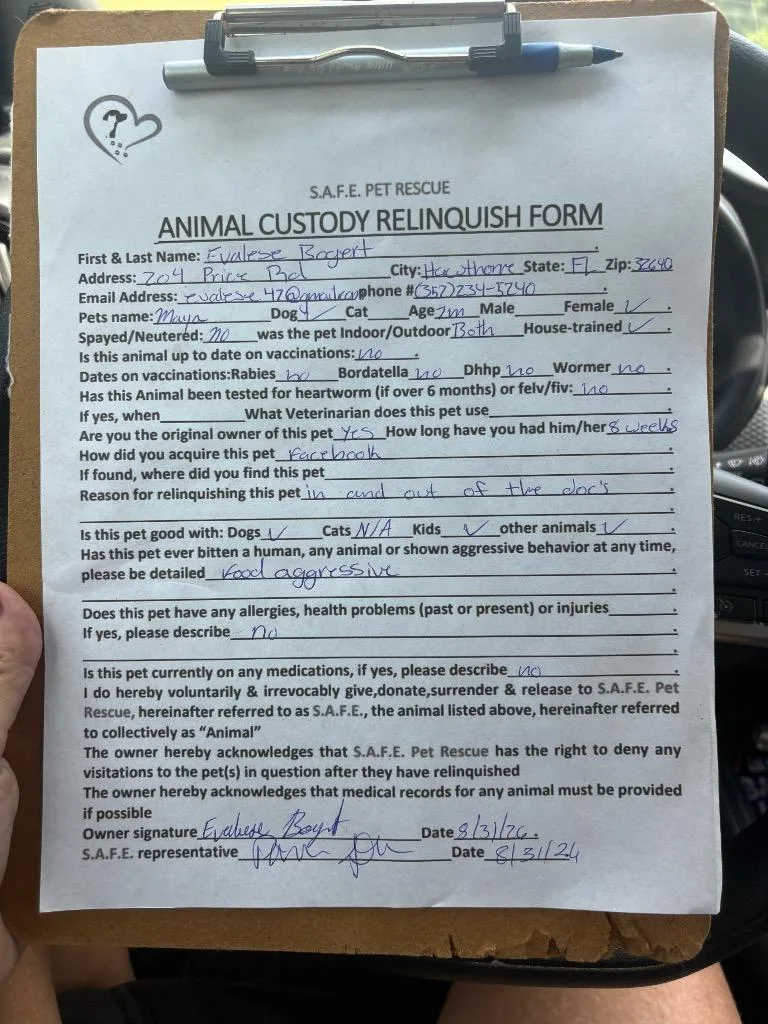 S.A.F.E. PET RESCUE
ANIMAL CUSTODY RELINQUISH FORM
First & Last Name: Evalese Bogert
Address: 204 Price Rd City: Hawthorne State: FL Zip: 32640
Email Address: evalese.42@gmail.com phone # (352)234-5240
Pets name: Maya Dog ✓ Cat Age 2m Male Female ✓
Spayed/Neutered: no was the pet Indoor/Outdoor Both House-trained ✓
Is this animal up to date on vaccinations: no
Dates on vaccinations:Rabies no Bordatella no Dhhp no Wormer no
Has this Animal been tested for heartworm (if over 6 months) or felv/fiv: no
If yes, when What Veterinarian does this pet use
Are you the original owner of this pet yes How long have you had him/her 8 weeks
How did you acquire this pet Facebook
If found, where did you find this pet
Reason for relinquishing this pet in and out of the doc's
Is this pet good with: Dogs ✓ Cats N/A Kids ✓ other animals ✓
Has this pet ever bitten a human, any animal or shown aggressive behavior at any time,
please be detailed Food aggressive
Does this pet have any allergies, health problems (past or present) or injuries
If yes, please describe no
Is this pet currently on any medications, if yes, please describe no
I do hereby voluntarily & irrevocably give,donate,surrender & release to S.A.F.E. Pet
Rescue, hereinafter referred to as S.A.F.E., the animal listed above, hereinafter referred
to collectively as “Animal”
The owner hereby acknowledges that S.A.F.E. Pet Rescue has the right to deny any
visitations to the pet(s) in question after they have relinquished
The owner hereby acknowledges that medical records for any animal must be provided
if possible
Owner signature Evalese Bogert Date 8/31/26.
S.A.F.E. representative Date 8/31/24
RES +
CANCEL
SET -